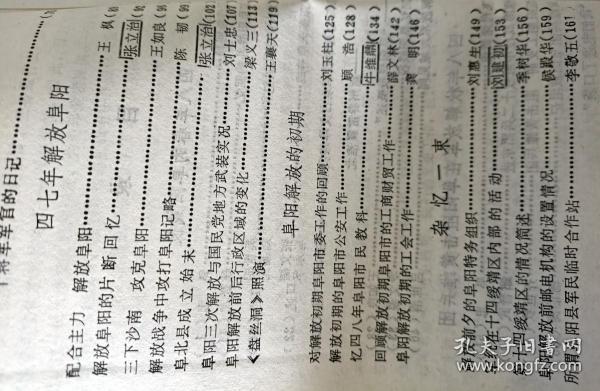 军官的日记
四七年解放阜阳
配合主力 解放阜阳……王 枫(
解放阜阳的片断回忆……张立治(
三下沙南 攻克阜阳……王如良(9
解放战争中攻打阜阳记略……陈 韧(9
阜北县成立始末……张立治(102)
阜阳三次解放与国民党地方武装实况……刘士忠(107)
阜阳解放前后行政区域的变化……梁义三(113)
《盘丝洞》照演……王赛天(119)
阜阳解放的初期
对解放初期阜阳市委工作的回顾……刘玉柱(125)
解放初期的阜阳市公安工作……顾 浩(128)
忆四八年阜阳市民教科……牛维鼎(134)
回顾解放初期阜阳市的工商财贸工作……薛文林(142)
阜阳解放初期的工会工作……龚 明(146)
杂忆一束
解放前夕的阜阳特务组织……刘惠生(149)
在十四绥靖区内部的活动……刘建初(153)
十四绥靖区的情况简述……季树华(156)
阜阳解放前邮电机构的设置情况……侯殿华(159)
所谓阜阳县军民临时合作站……李敬五(161
孔夫子旧书网
www.kongfz.com